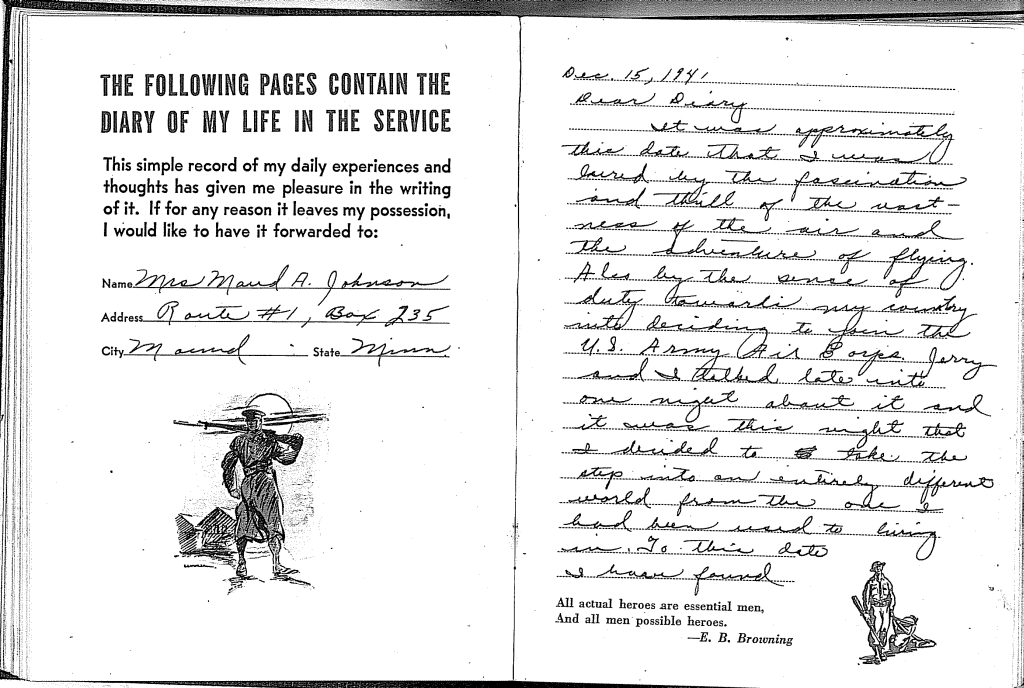 THE FOLLOWING PAGES CONTAIN THE
DIARY OF MY LIFE IN THE SERVICE
This simple record of my daily experiences and
thoughts has given me pleasure in the writing
of it. If for any reason it leaves my possession,
I would like to have it forwarded to:
Name Mrs Maud A. Johnson
Address Route #1, Box 235
City Mound State Minn.
Dec. 15, 1941
Dear Diary
It was approximately
this date that I was
lured by the fascination
and thrill of the vast-
ness of the air and
the adventure of flying.
Also by the sense of
duty towards my country
into deciding to join the
U.S. Army Air Corps. Jerry
and I talked late into
one night about it and
it was this night that
I decided to take the
step into an entirely different
world from the one I
had been used to living
in. To this date
I have found
All actual heroes are essential men,
And all men possible heroes.
—E. B. Browning